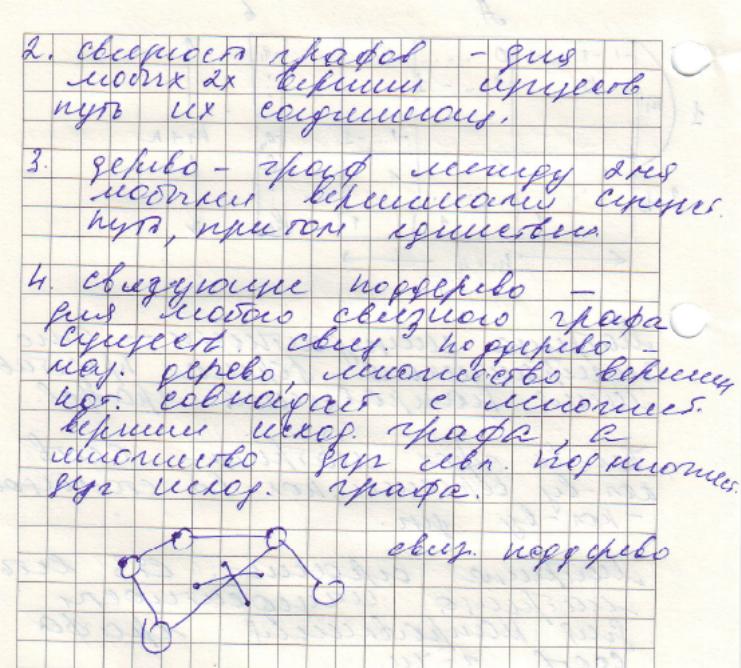 2. связность графов - для
любых 2х вершин существ.
путь их соединяющ.
3. дерево - граф между 2мя
любыми вершинами сущест.
путь, притом единствен
4. Связующие поддерево —
для любого связного графа
существ. связ. поддерево -
наз. дерево, множество вершин
кот. совпадает с множест.
вершин исход. графа, а
множество дуг явл. подмножест.
дуг исход. графа.
связ. поддерево